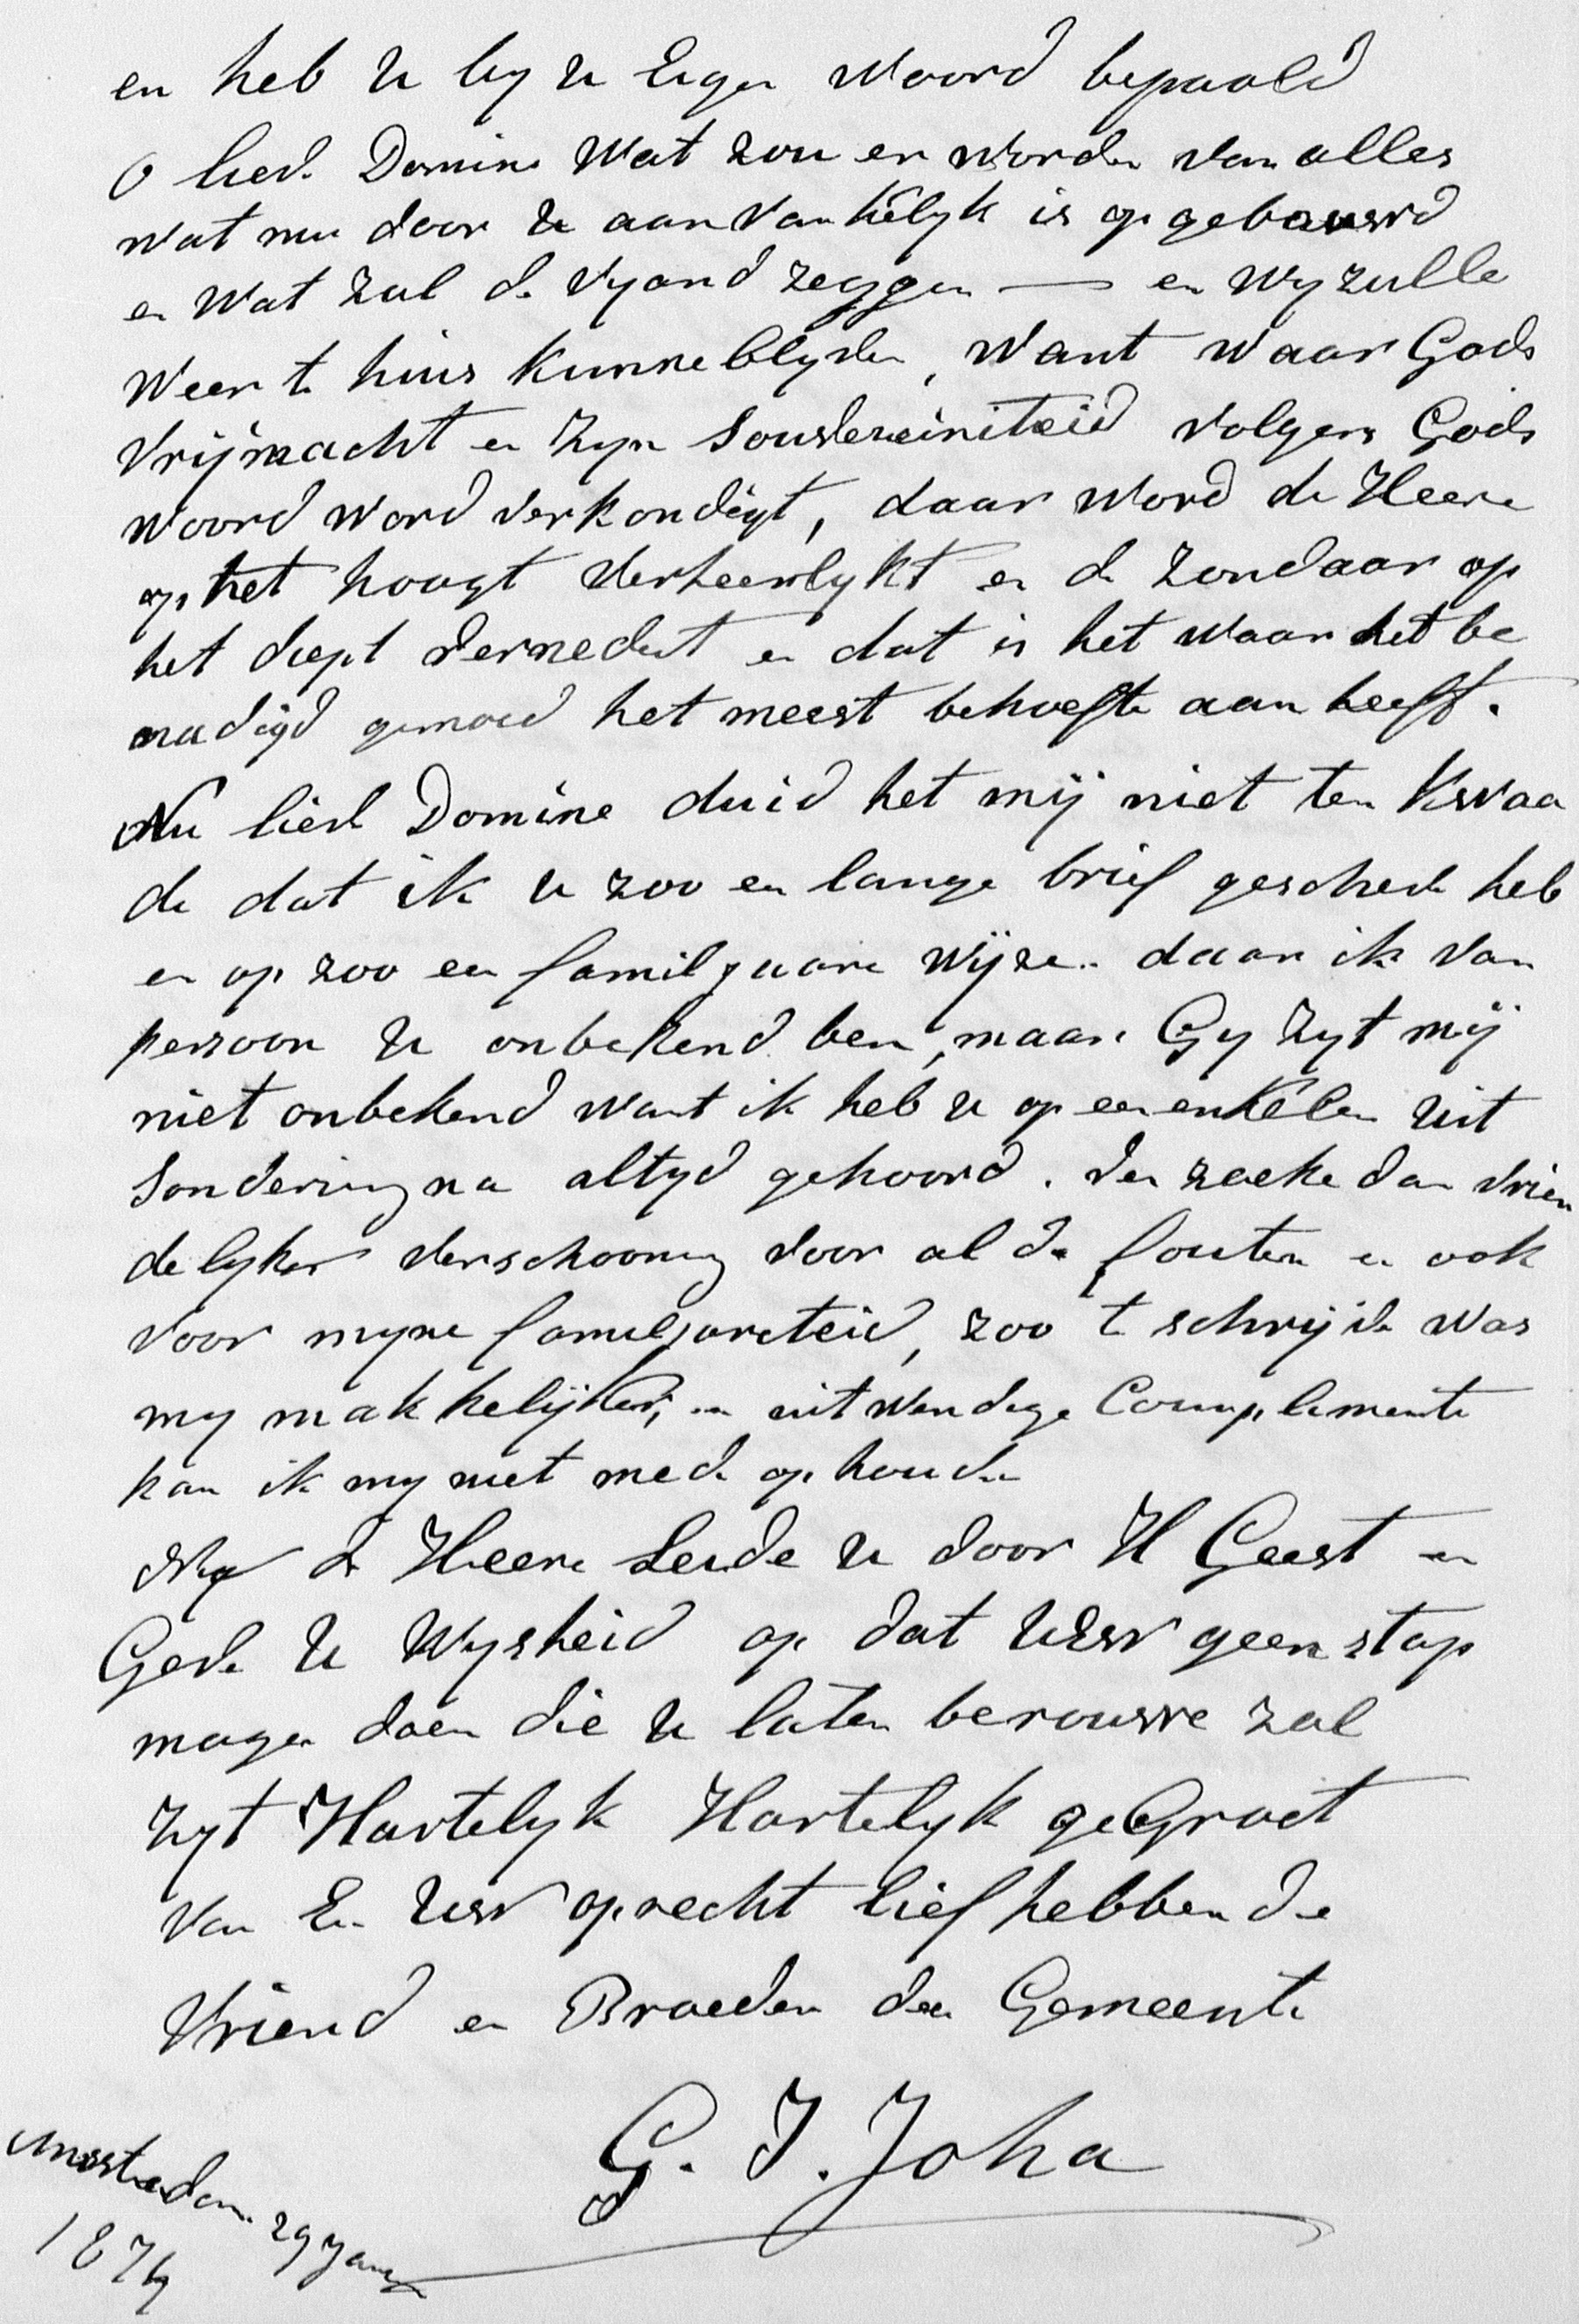 en heb U by U Eigen Woord bepaald
O lieve Domine Wat zou er worden van alles
wat nu door U aanvankelyk is opgebouwd
en Wat zal de Vyand zeggen — en wy zulle
Weer te huis kunne blyven, Want waar Gods
Vrijmacht en Zyn Souvereiniteid volgens Gods
woord word verkondigt, daar word de Heere
op het hoogst verheerlykt en de Zondaar op
het diepst vernedert en dat is het waar het be
nadigd gemoed het meest behoefte aan heeft.
Nu lieve Domine duid het mij niet ten Kwaa
de dat ik U zoo en lange brief geschreve heb
en op zoo een familjaare Wijze. daar ik van
persoon U onbekend ben, maar Gy Zyt mij
niet onbekend want ik heb U op een enkelen uit
sondering na altyd gehoord. Verzoeke dan vrien
delyker verschooning voor al de fouten en ook
voor myne familjariteid, zoo te schrijve was
my makkelijker, en uitwendige Complimente
kan ik my niet mede op houden
Nu de Heere Leide U door H Geest en
Geve U Wysheid op dat UEw geen stap
mogen doen die U laten berouwe zal
Zyt Hartelyk Hartelyk geGroet
Van En UEw oprecht liefhebbende
Vriend en Broeder der Gemeente
G. J. Joha
Amsterdam 29 Jan
1874